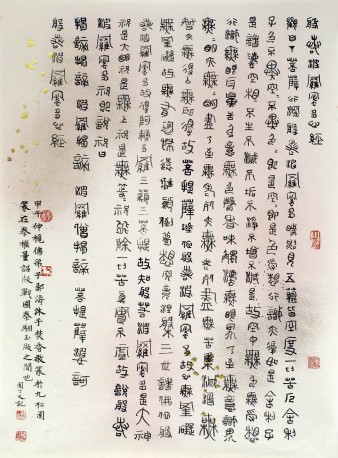 般若波羅蜜多心經
觀自在菩薩行深般若波羅蜜多時照見五蘊皆空度一切苦厄舍利
子色不異空空不異色色即是空空即是色受想行識亦復如是舍利子
是諸法空相不生不滅不垢不淨不增不減是故空中無色無受想
行識無眼耳鼻舌身意無色聲香味觸法無眼界乃至無意識界
無無明亦無無明盡乃至無老死亦無老死盡無苦集滅道無
智亦無得以無所得故菩提薩埵依般若波羅蜜多故心無罣礙
無罣礙故無有恐怖遠離顛倒夢想究竟涅槃三世諸佛依般
若波羅蜜多故得阿耨多羅三藐三菩提故知般若波羅蜜多是大神
咒是大明咒是無上咒是無等等咒能除一切苦真實不虛故說般若
波羅蜜多咒即說咒曰
揭諦揭諦波羅揭諦波羅僧揭諦菩提薩婆訶
般若波羅蜜多心經
甲午仲佛弟子鄭濤沐手焚香敬篆於九松園
篆在秦權量詔版戰國秦駰玉版之間也又記